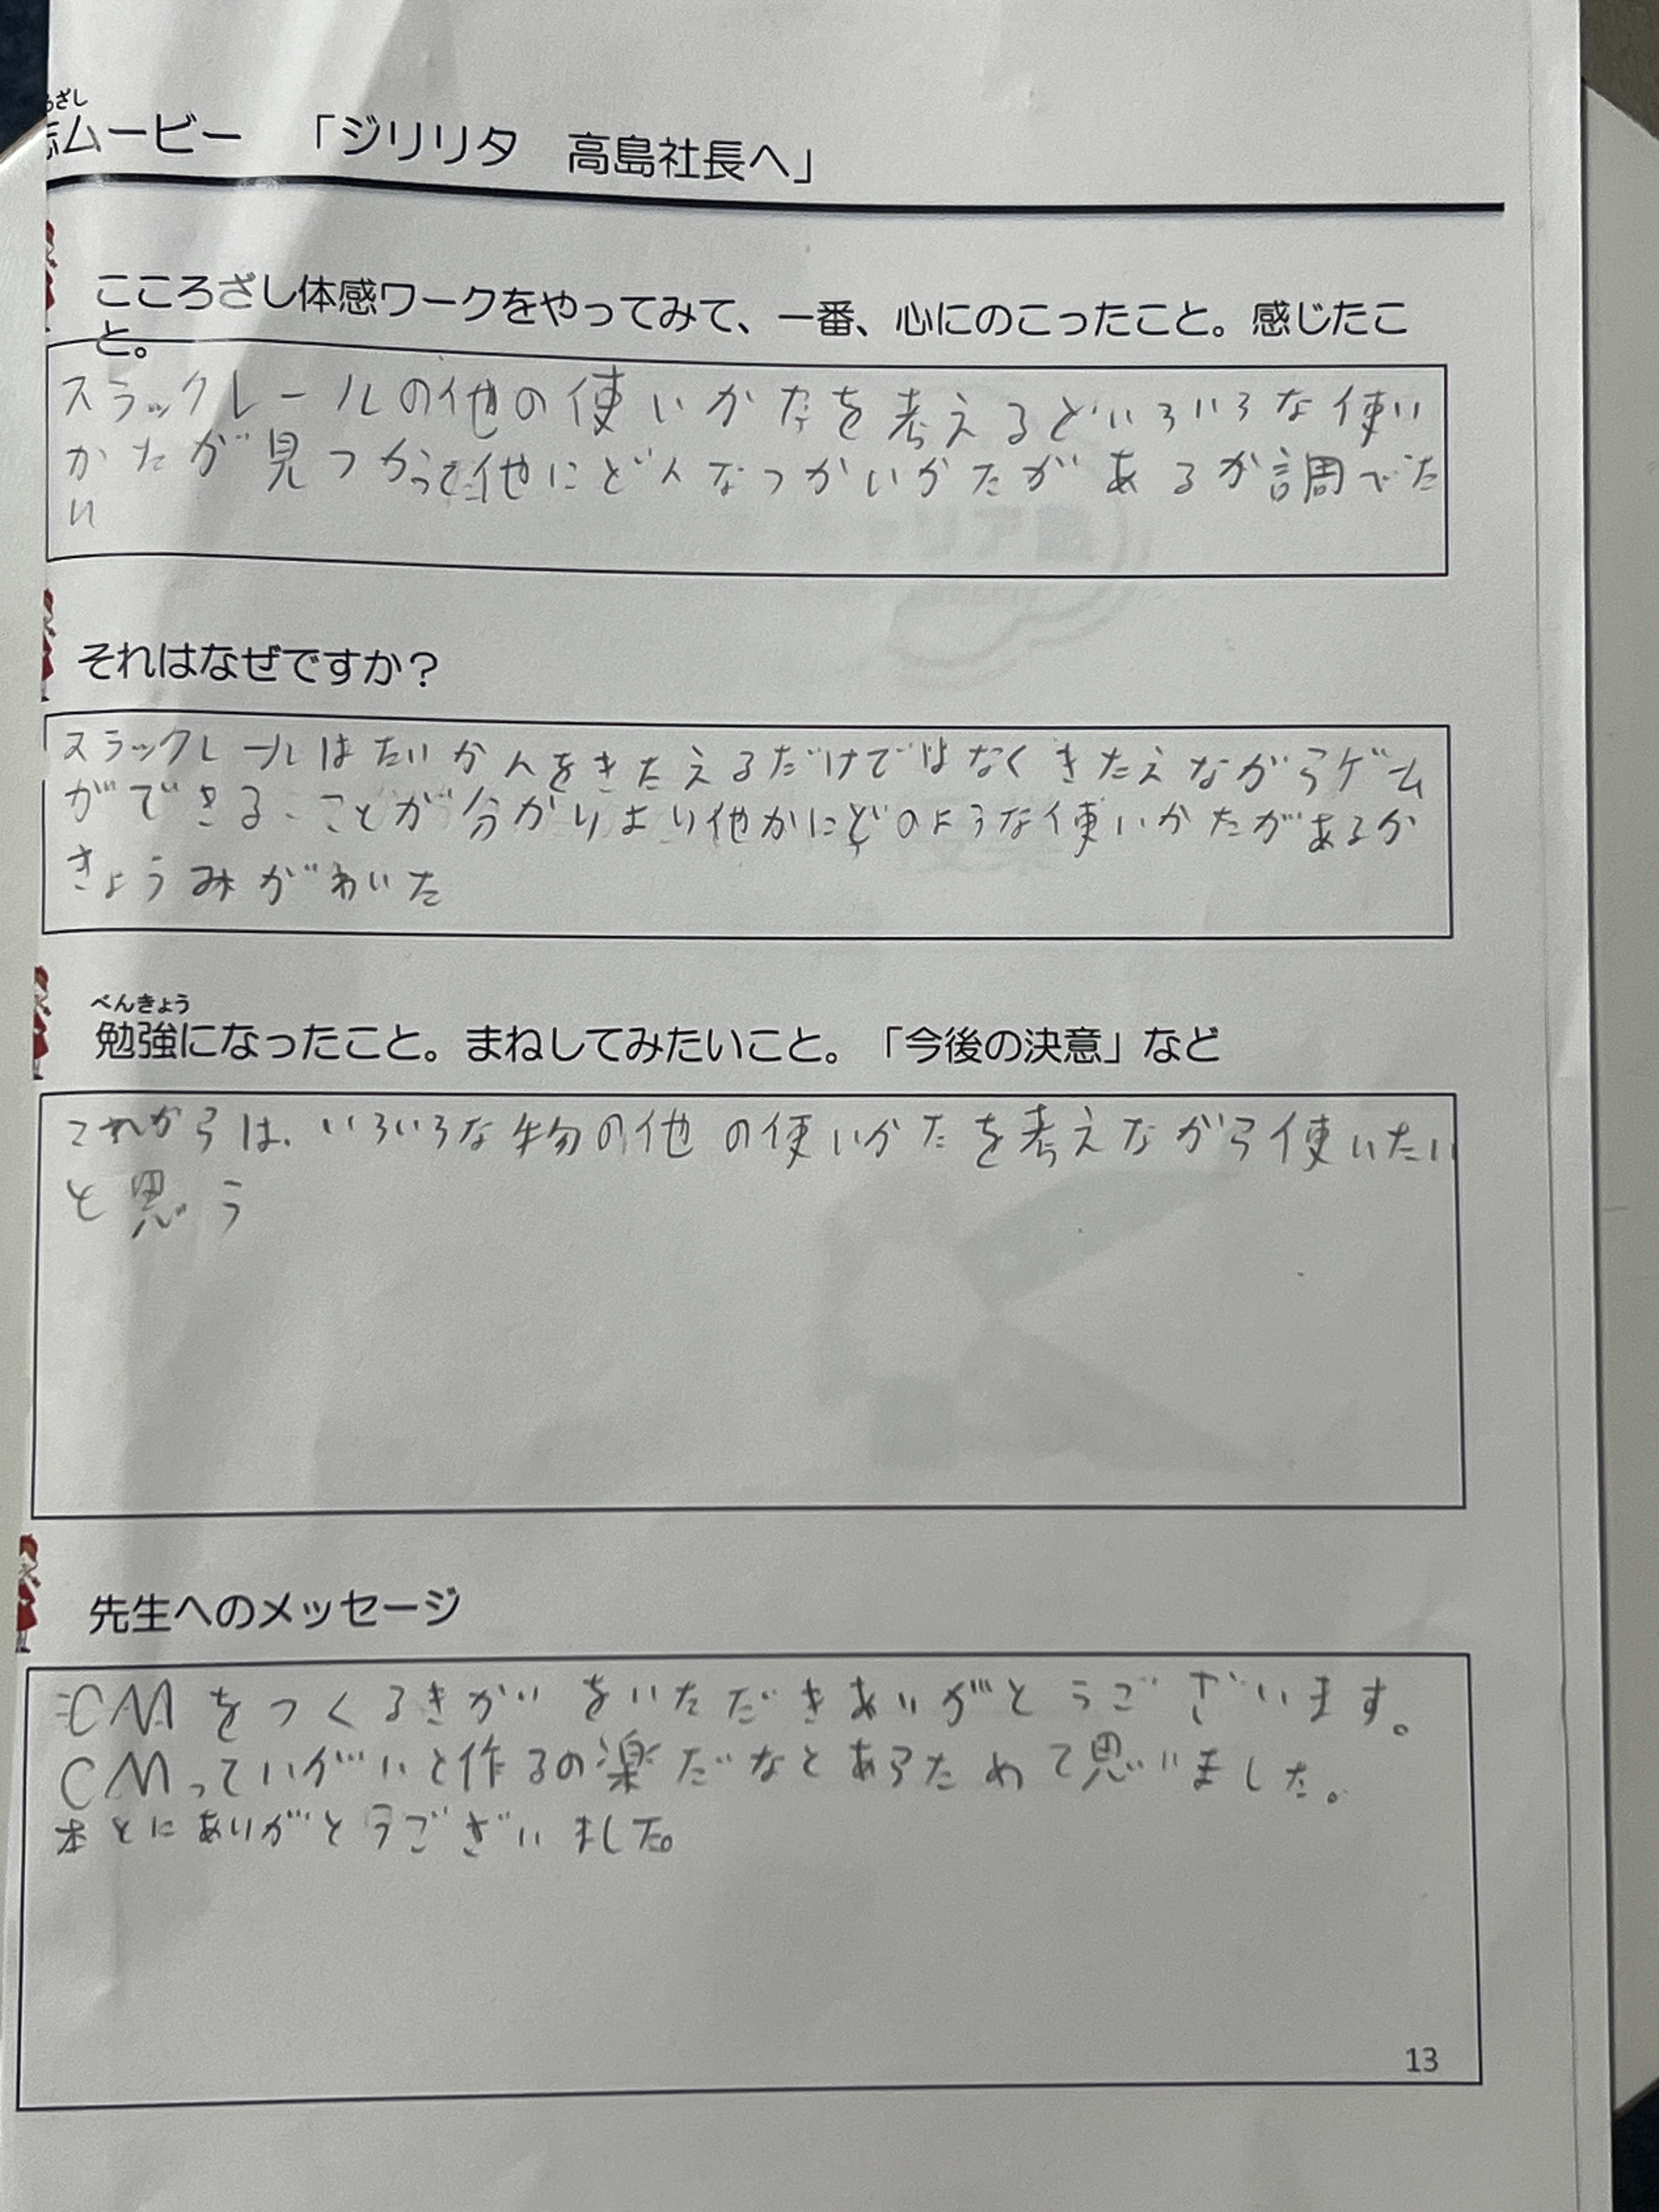 ざし
志ムービー 「ジリリタ 高島社長へ」
こころざし体感ワークをやってみて、一番、心にのこったこと。感じたこ
と。
スラックレールの他の使いかたを考えるといろいろな使い
かたが見つかって他にどんなつかいかたがあるか調べた
い
それはなぜですか？
スラックレールはたいかんをきたえるだけではなくきたえながらゲーム
ができることが分かりより他かにどのような使いかたがあるか
きょうみがわいた
べんきょう
勉強になったこと。まねしてみたいこと。「今後の決意」など
これからは、いろいろな物の他の使いかたを考えながら使いたい
と思う
先生へのメッセージ
CMをつくるきがいをいただきありがとうございます。
CMっていがいと作るの楽だなとあらためて思いました。
本とにありがとうございました。
13